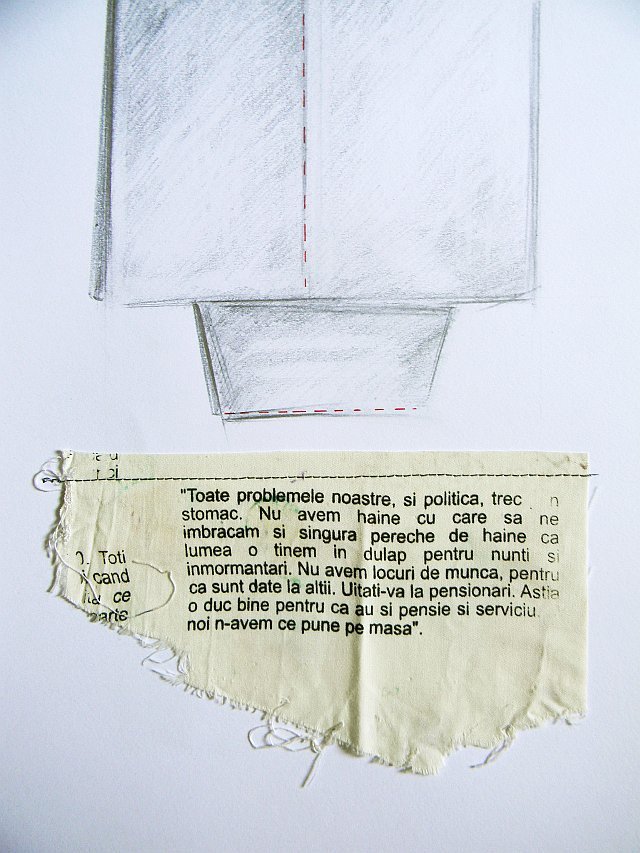 "Toate problemele noastre, si politica, trec n
stomac. Nu avem haine cu care sa ne
imbracam si singura pereche de haine ca
lumea o tinem in dulap pentru nunti si
inmormantari. Nu avem locuri de munca, pentru
ca sunt date la altii. Uitati-va la pensionari. Astia
o duc bine pentru ca au si pensie si serviciu
noi n-avem ce pune pe masa".
Toti
cand
ce